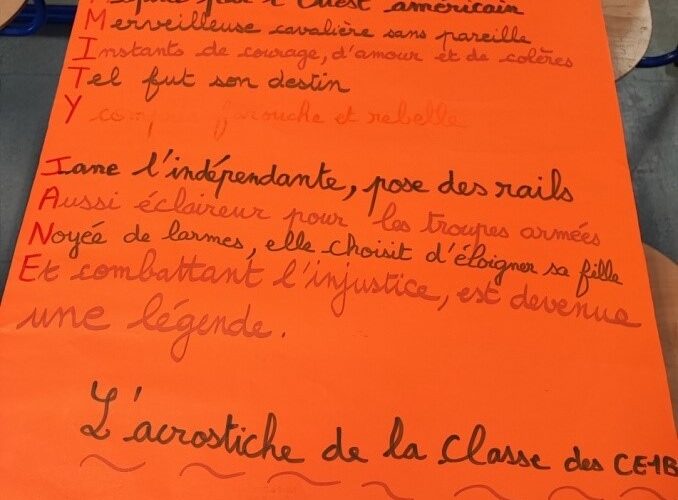 pour l'Ouest américain
Merveilleuse cavalière sans pareille
Instants de courage, d'amour et de colères
Tel fut son destin
Y farouche et rebelle
Iane l'indépendante, pose des rails
Aussi éclaireur pour les troupes armées
Noyée de larmes, elle choisit d'éloigner sa fille
Et combattant l'injustice, est devenue
une légende.
L'acrostiche de la classe des CE1B